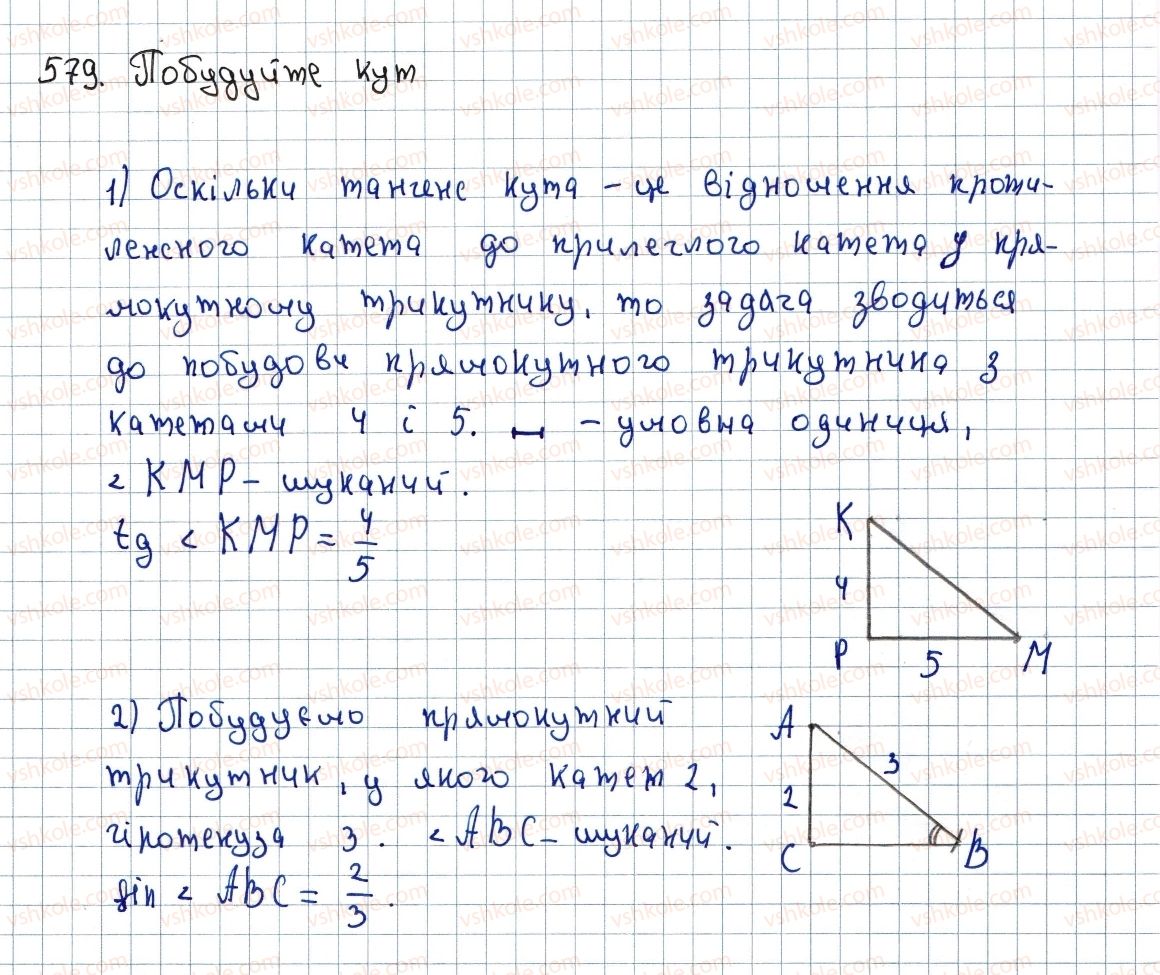 579. Побудуйте кут
1) Оскільки тангенс кута – це відношення проти-
лежного катета до прилеглого катета у пря-
мокутному трикутнику, то задача зводиться
до побудови прямокутного трикутника з
катетами 4 і 5. – умовна одиниця,
∠ KMP – шуканий.
tg ∠ KMP = 4/5
K
4
P
5
M
2) Побудуємо прямокутний
трикутник, у якого катет 2,
гіпотенуза 3. ∠ABC – шуканий.
sin ∠ ABC = 2/3.
A
3
2
C
B
vshkole.com